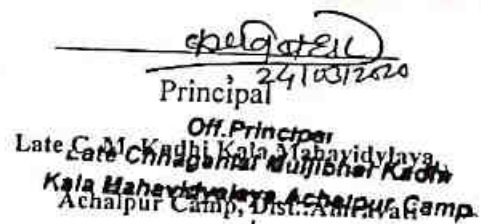 24/03/2020
Principal
Off.Principal
Late C. M. Kadhi Kala Mahavidylaya,
Late Chhaganlal Muljibhai Kadhi
Kala Mahavidyalaya Achalpur Camp.
Achalpur Camp, Dist.:Amravati